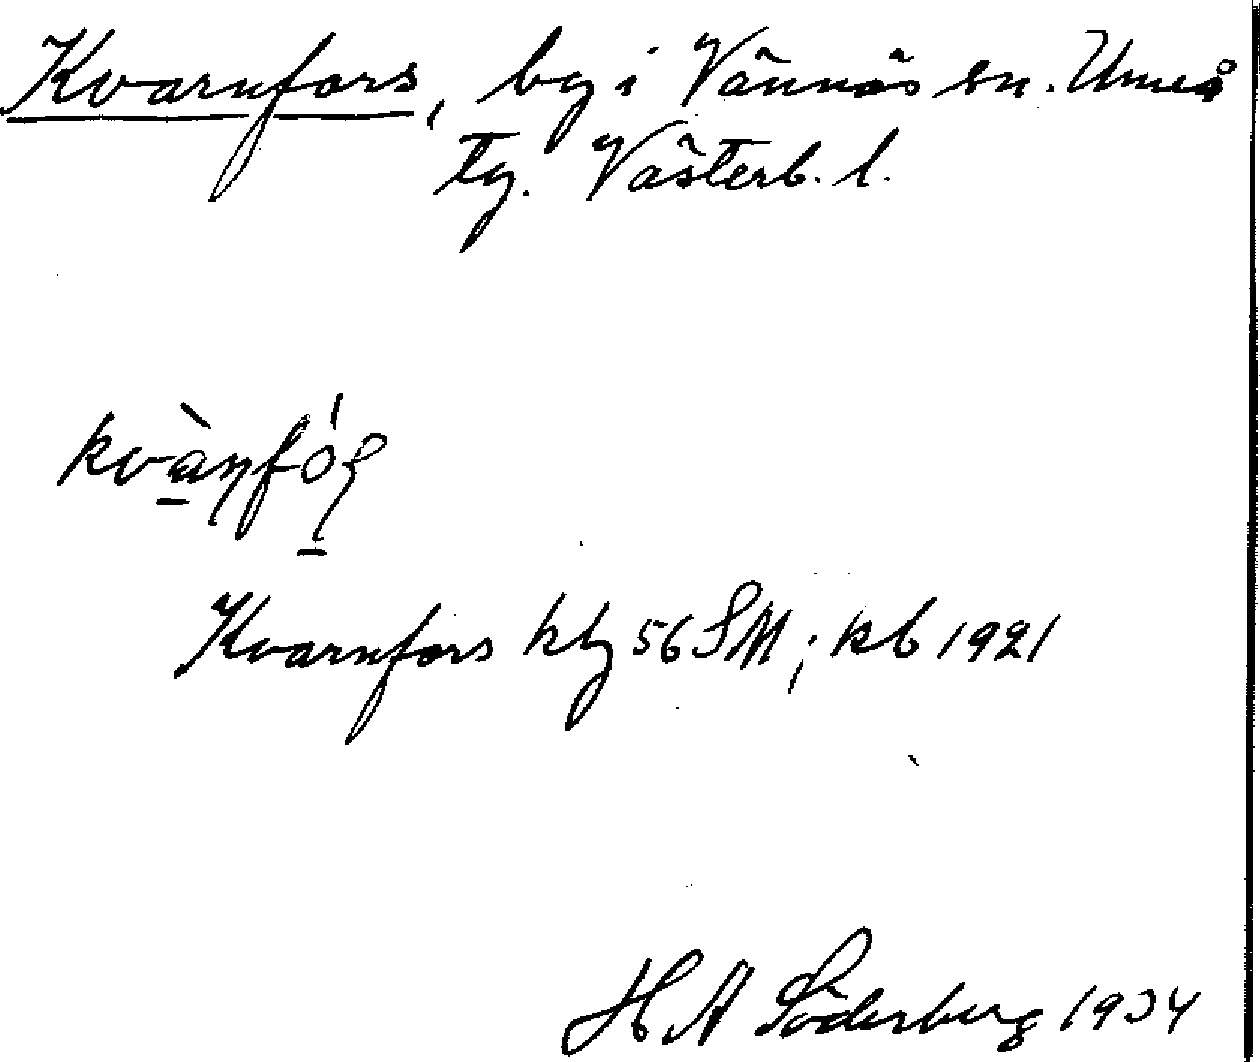 Kvarnfors, by i Vännäs sn. Umeå
tg. Västerb. l.
Kvarnfors kbg 56 SM; kb 1921
H A Söderberg 1934